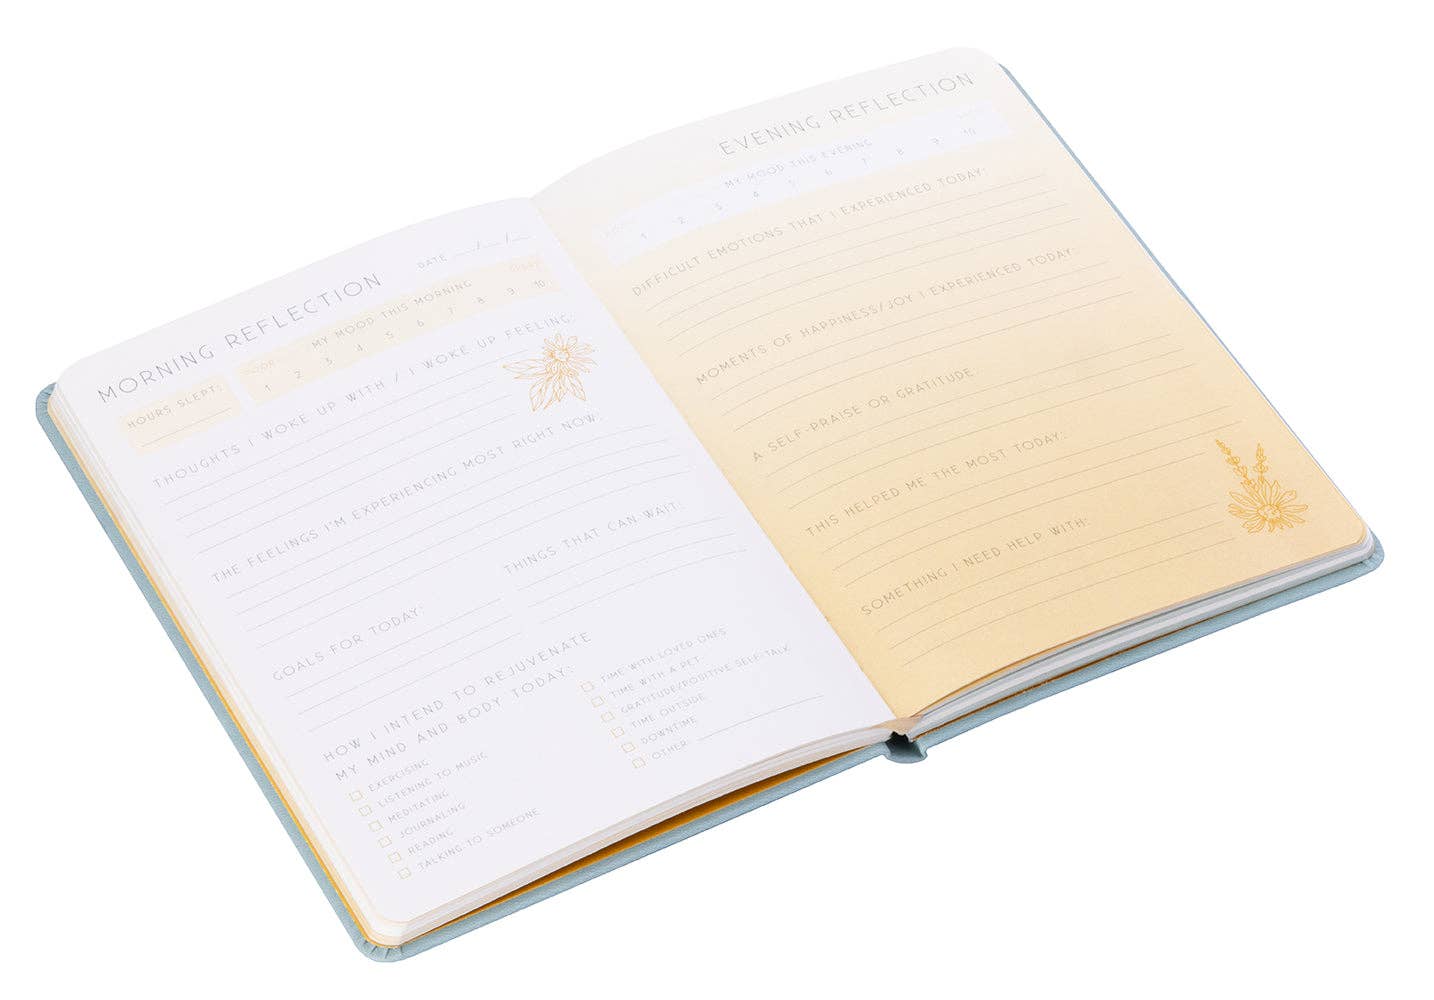 MORNING REFLECTION
DATE __/__/__
HOURS SLEPT:
MY MOOD THIS MORNING
1 2 3 4 5 6 7 8 9 10
THOUGHTS I WOKE UP WITH / I WOKE UP FEELING:
THE FEELINGS I'M EXPERIENCING MOST RIGHT NOW:
GOALS FOR TODAY:
THINGS THAT CAN WAIT:
HOW I INTEND TO REJUVENATE
MY MIND AND BODY TODAY:
EXERCISING
LISTENING TO MUSIC
MEDITATING
JOURNALING
READING
TALKING TO SOMEONE
TIME WITH LOVED ONES
TIME WITH A PET
GRATITUDE/POSITIVE SELF-TALK
TIME OUTSIDE
DOWNTIME
OTHER:
EVENING REFLECTION
MY MOOD THIS EVENING
1 2 3 4 5 6 7 8 9 10
DIFFICULT EMOTIONS THAT I EXPERIENCED TODAY:
MOMENTS OF HAPPINESS/JOY I EXPERIENCED TODAY:
A SELF-PRAISE OR GRATITUDE:
THIS HELPED ME THE MOST TODAY:
SOMETHING I NEED HELP WITH: